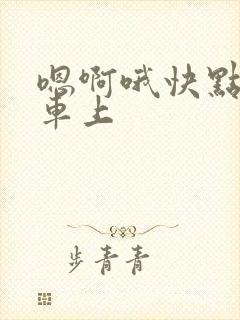 嗯啊哦快點
車上
步青青